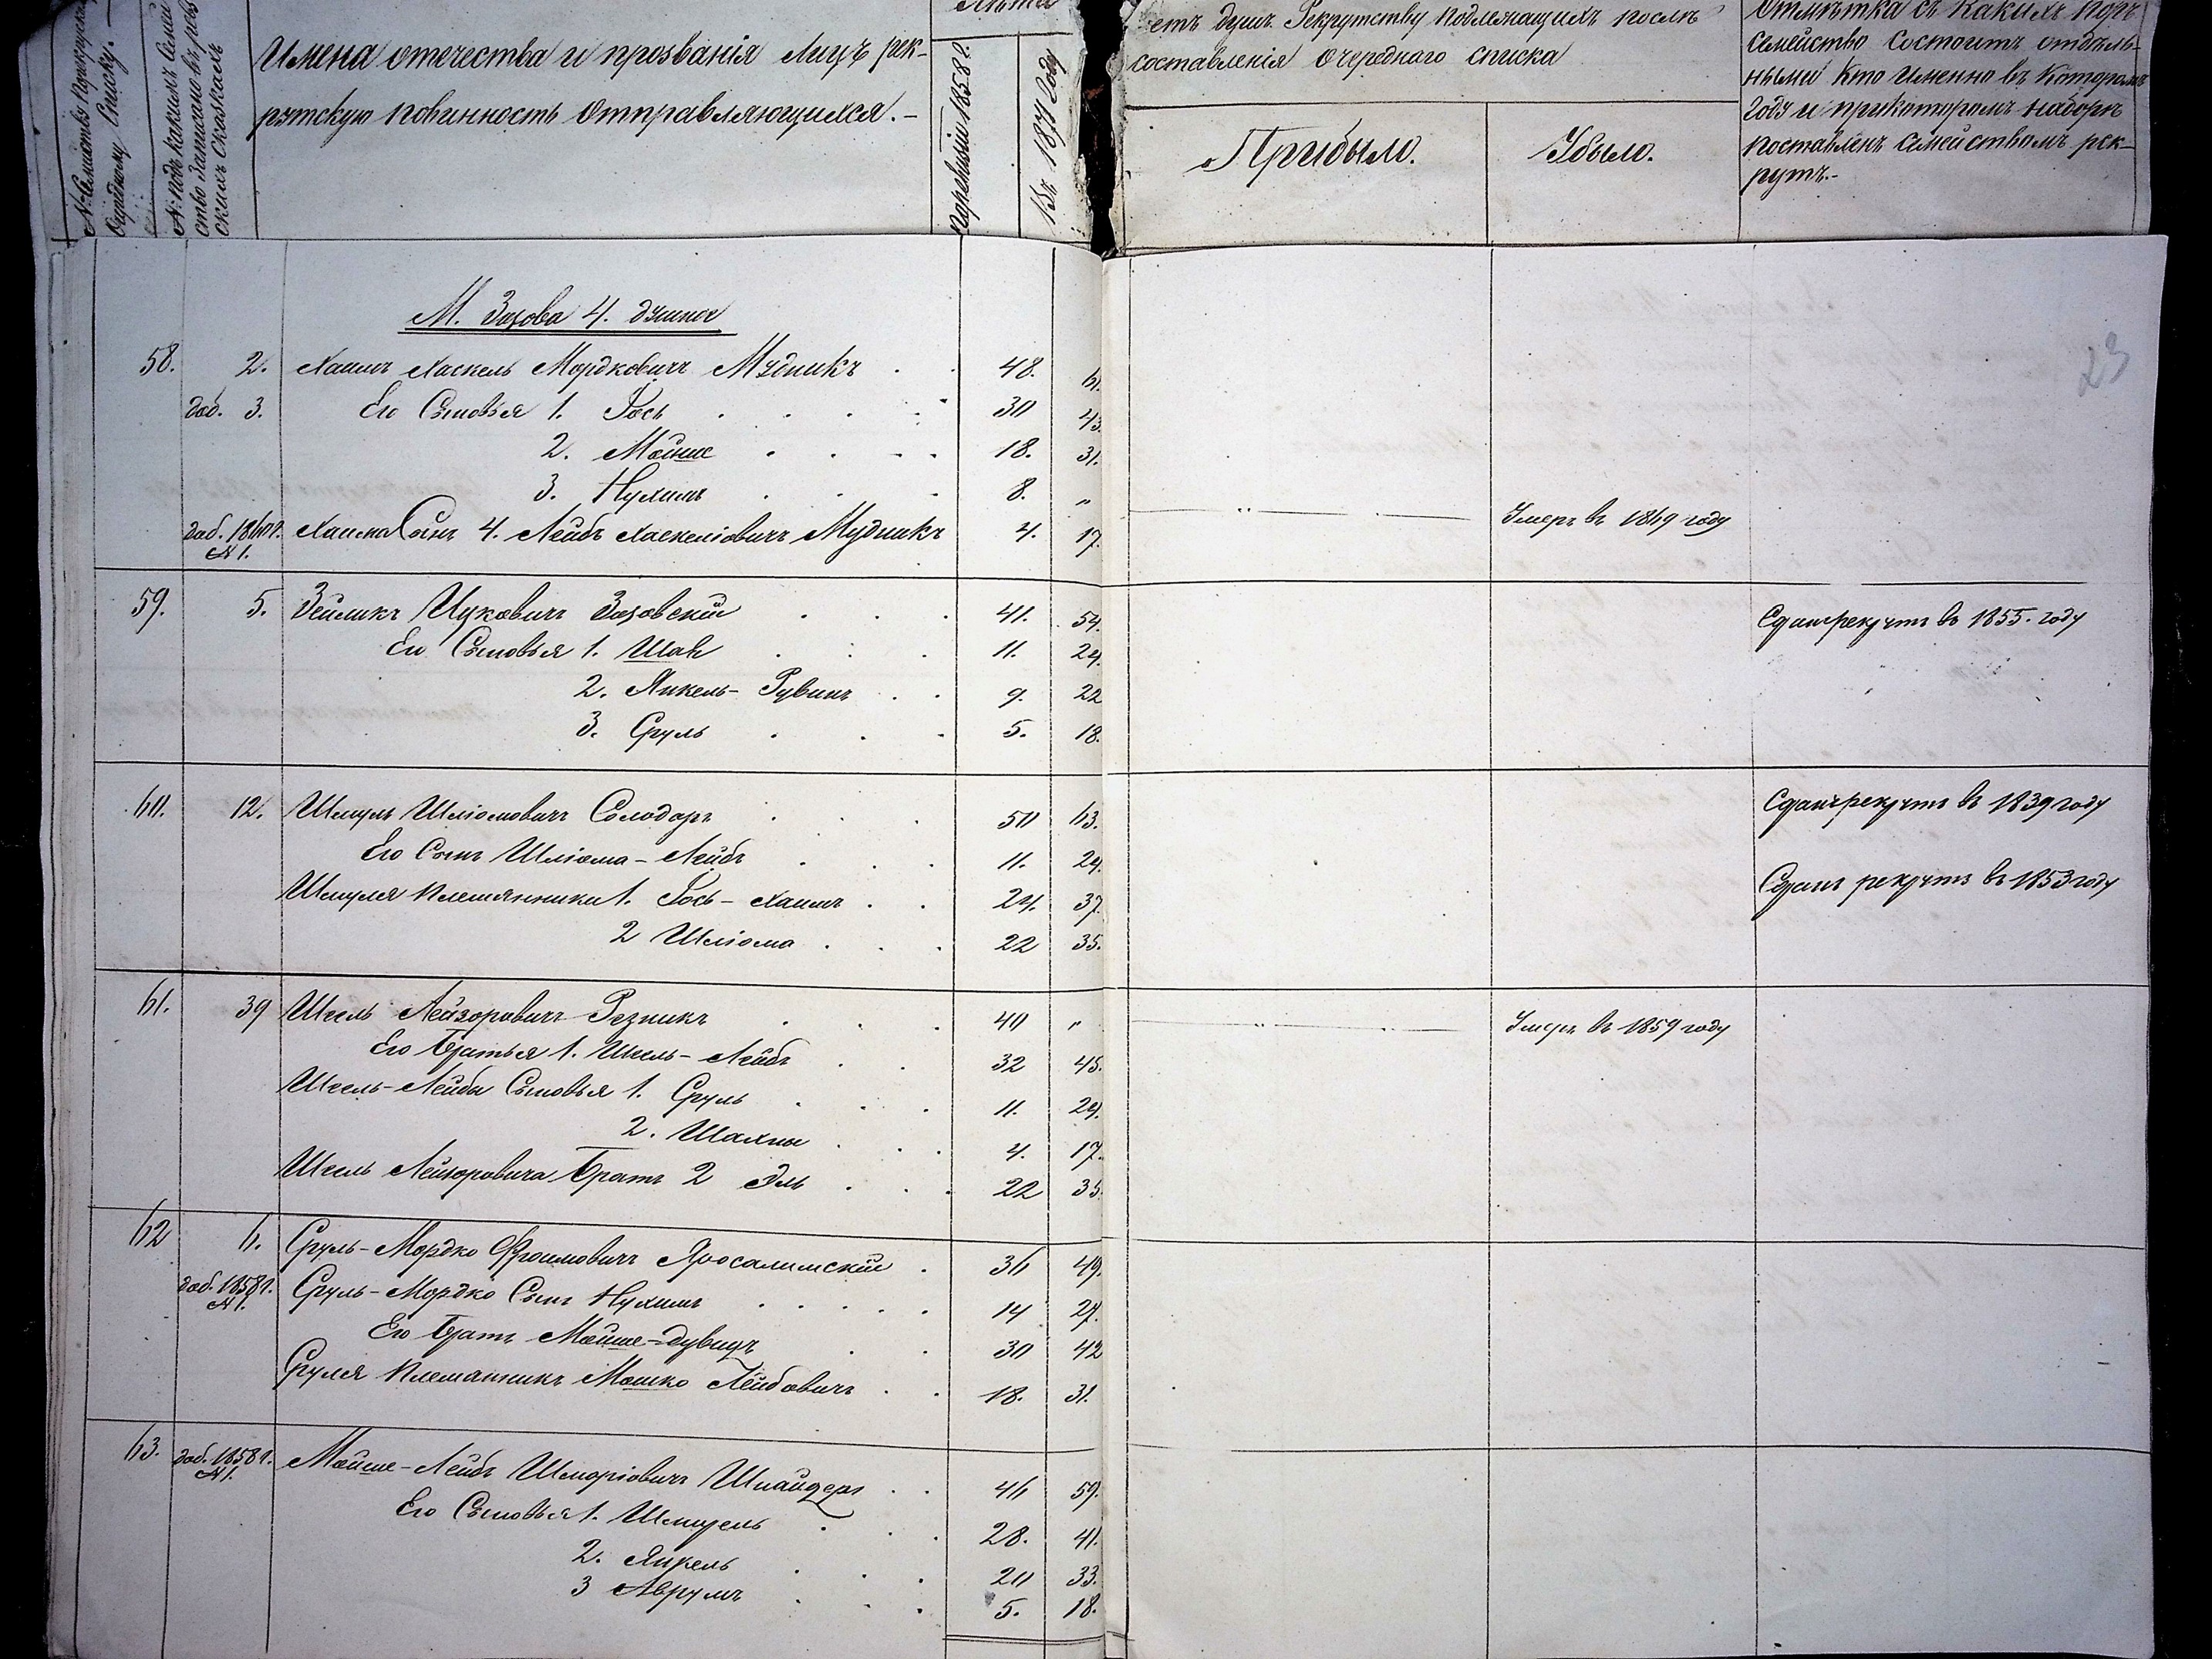 № Семейства по рекрутскому
Очередному Списку.
№ подъ какимъ Семей
ство записано въ рев
скихъ сказкахъ
Имена отечества и прозванія лицъ рек-
рутскую повинность отправляющихся.-
Лѣта
по ревизіи 1858 г.
Въ 1871 Году
етъ душъ Рекрутству подлежащихъ послѣ
составленія очереднаго списка
Прибыло.
Убыло.
Отмѣтка съ какихъ поръ
семейство состоитъ отдѣль-
нымъ кто именно въ которомъ
году и при которомъ наборѣ
поставленъ семействомъ рек-
рутъ.-
23
М. Зозова 4. душных
58. 2. Хаимъ Хаскель Мордковичъ Мудникъ 48. 61.
доб. 3. Его Сыновья 1. Іось 30 43.
2. Мойше 18. 31.
3. Нухимъ 8. „ Умеръ въ 1869 году
доб. 1860 г. Хаима Сынъ 4. Лейбъ Хаскеліовичъ Мудникъ 4. 17.
№ 1.
59. 5. Зейликъ Ицковичъ Зозовскій 41. 54. Сданъ рекрутъ въ 1855. году
Его Сыновья 1. Шая 11. 24.
2. Янкель- Рувинъ 9. 22
3. Сруль 5. 18.
60. 12. Шмуль Шліомовичъ Солодарь 50 63. Сданъ рекрутъ въ 1839 году
Его Сынъ Шліома - Лейбъ 11. 24.
Шмуля племянники 1. Іось - Хаимъ 24. 37. Сданъ рекрутъ въ 1853 году
2 Шліома 22 35.
61. 39 Шсель Лейзоровичъ Резникъ 40 „ Умеръ въ 1859 году
Его Братья 1. Шсель - Лейбъ 32 45.
Шсель-Лейбы Сыновья 1. Сруль 11. 24.
2. Шахны 4. 17.
Шсель Лейзоровича Братъ 2 Эль 22 35
62 6. Сруль-Мордко Фроимовичъ Яросалимскій 36 49.
доб. 1858 г. Сруль-Мордко Сынъ Нухимъ 14 27.
№ 1.
Его Братъ Мойше-Дувидъ 30 42
Сруля племянникъ Мошко Лейбовичъ 18. 31.
63. доб. 1858 г. Мойше-Лейбъ Шморіовичъ Шнайдеръ 46 59.
№ 1.
Его Сыновья 1. Шмуель 28. 41.
2. Янкель 20 33.
3 Аврумъ 5. 18.